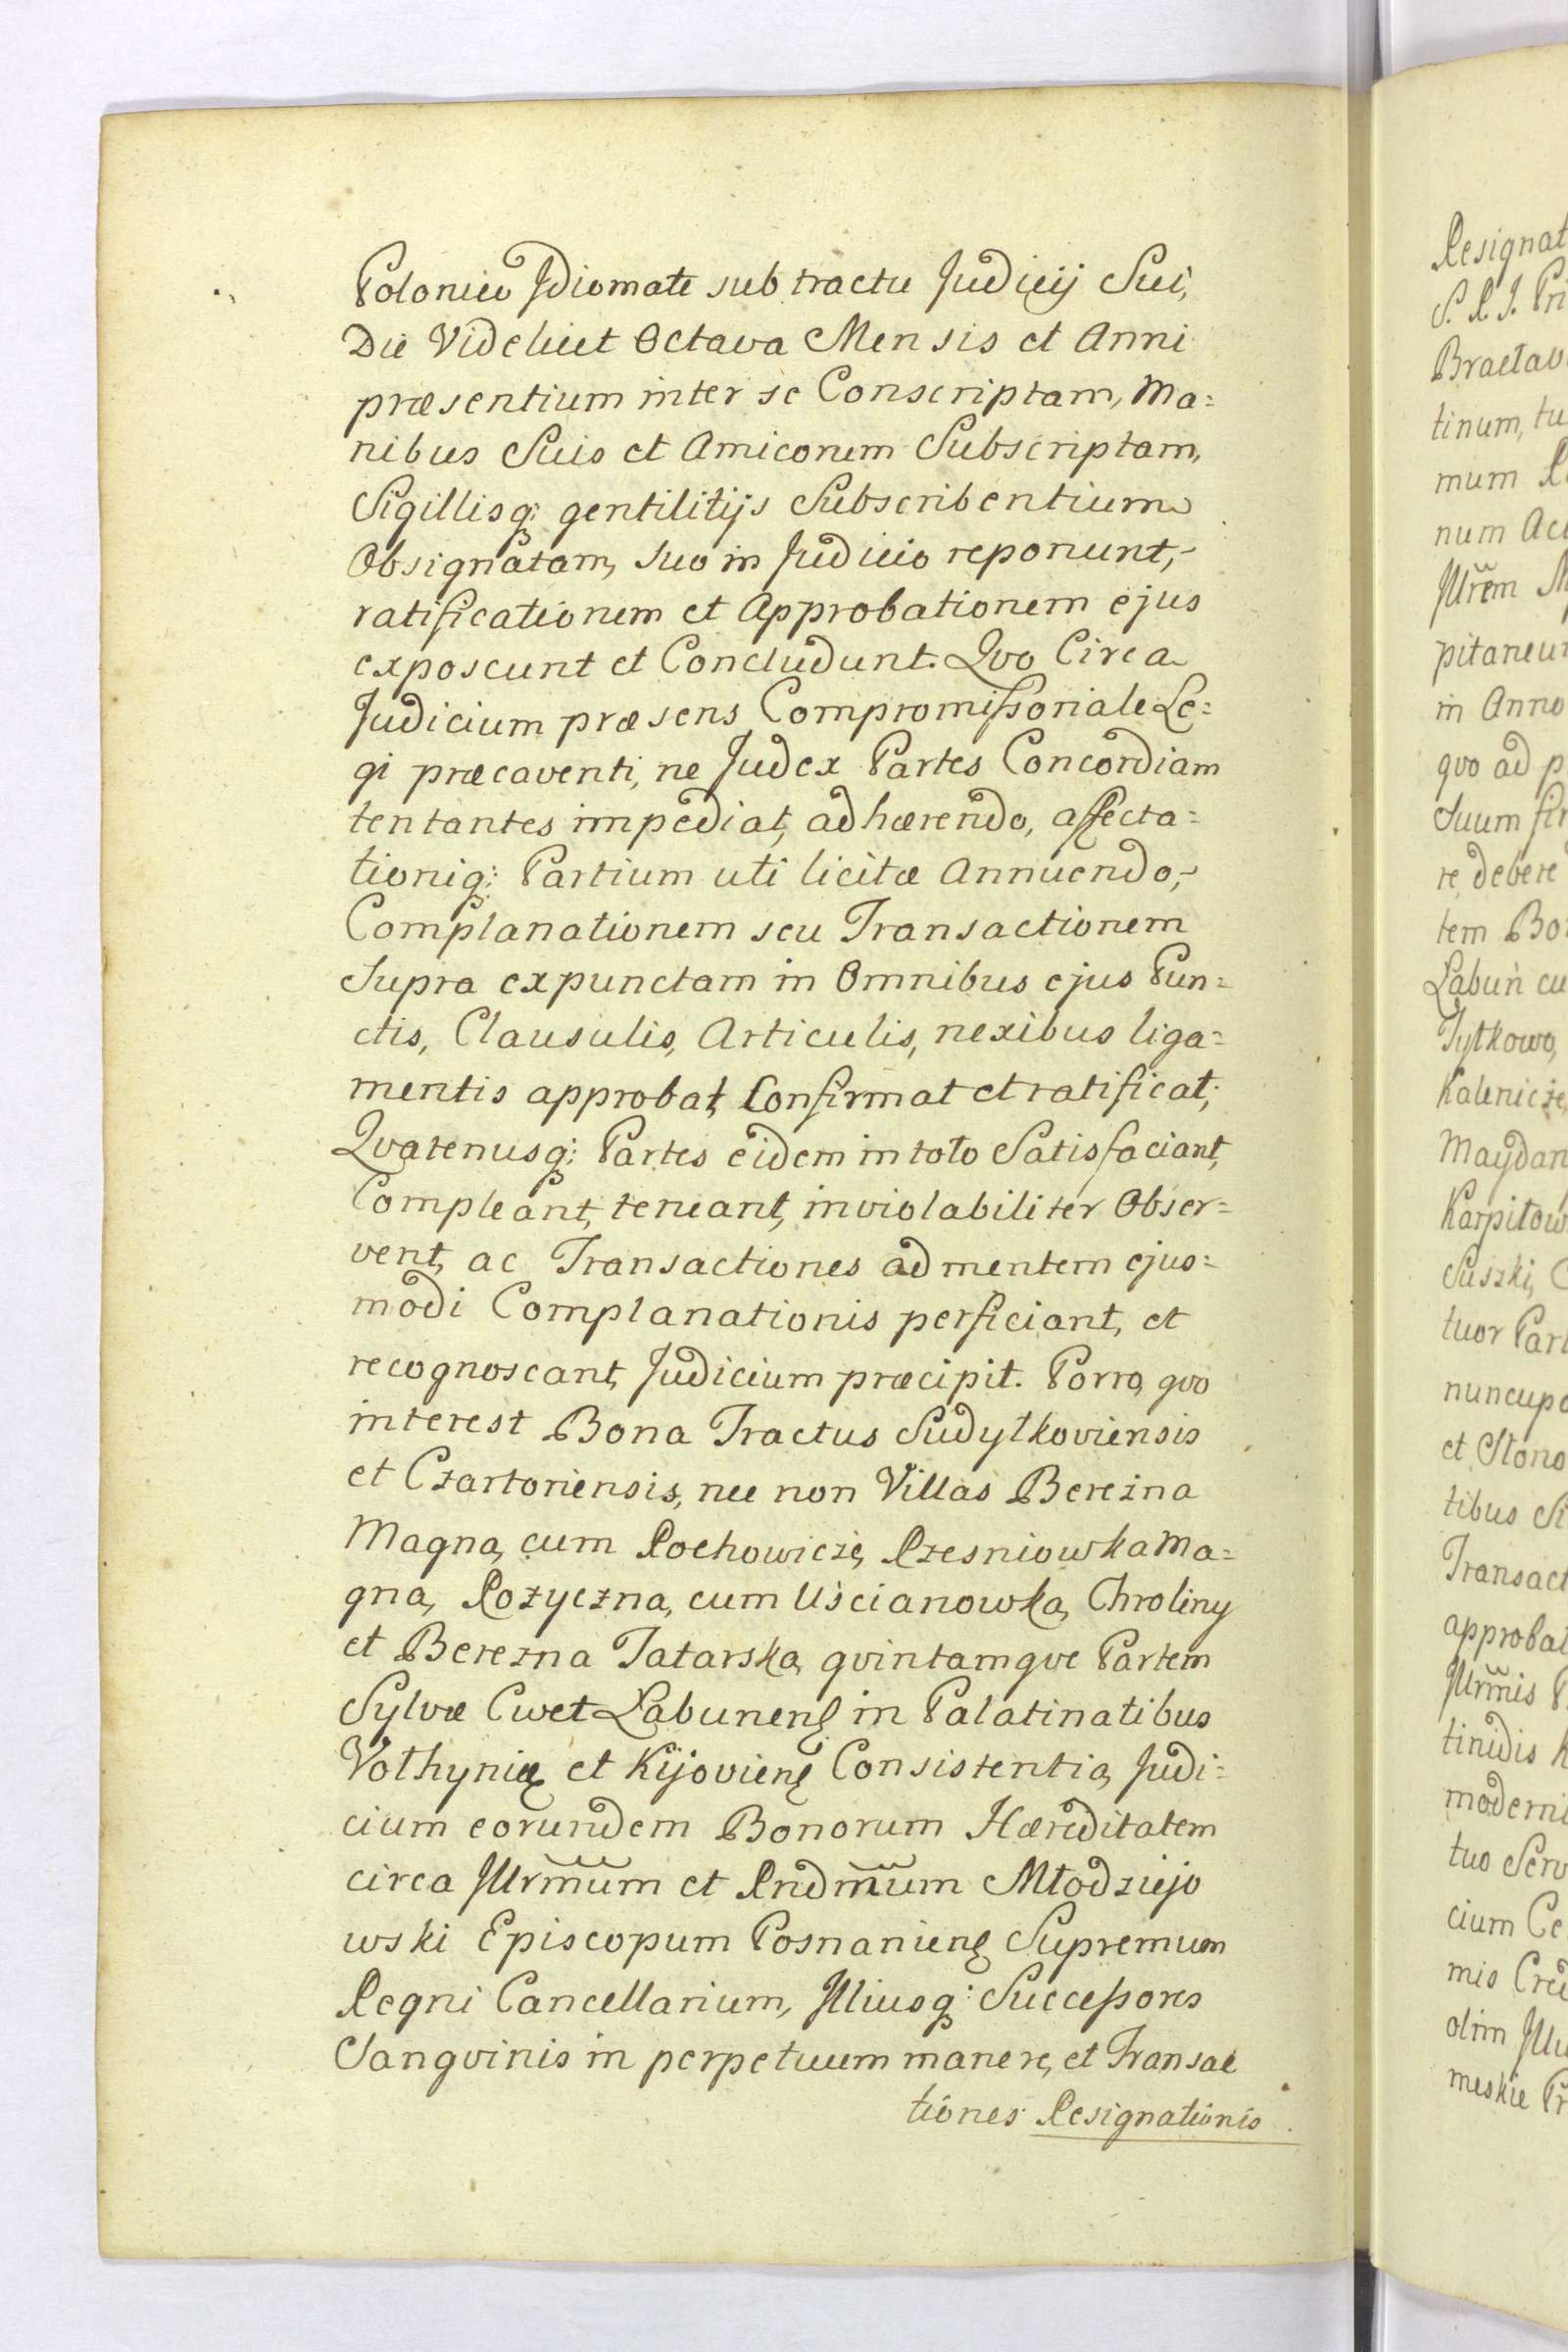 Polonico Idiomate sub tractu Judicij Sui,
Die Videlicet Octava Mensis et Anni
præsentium inter se Conscriptam, Ma=
nibus Suis et Amicorum Subscriptam,
Sigillisq: gentilitijs Subscribentium
Obsignatam, suo in Judicio reponunt,
ratificationem et Approbationem ejus
exposcunt et Concludunt. Qvo Circa
Judicium præsens Compromissoriale Le=
gi præcaventi, ne Judex Partes Concordiam
tentantes impediat, adhærendo, affecta=
tioniq: Partium uti licitæ Annuendo,
Complanationem seu Transactionem
Supra expunctam in Omnibus ejus Pun=
ctis, Clausulis, Articulis, nexibus liga=
mentis approbat, Confirmat et ratificat;
Qvatenusq: Partes eidem in toto Satisfaciant,
Compleant, teneant, inviolabiliter Obser=
vent, ac Transactiones ad mentem ejus=
modi Complanationis perficiant, et
recognoscant, Judicium præcipit. Porro, qvo
interest Bona Tractus Sudyłkoviensis
et Czartoriensis, nec non Villas Bereżna
Magna, cum Rochowicze, Rzesniowka Ma=
gna, Rożyczna, cum Uścianowka, Chroliny
et Berezna Tatarska, qvintamqve Partem
Sylvæ Cwet Łabunens in Palatinatibus
Volhyniæ et Kijoviens Consistentia, Judi=
cium eorundem Bonorum Hæreditatem
circa Illrm̃um et Rndm̃um Młodziejo
wski Episcopum Posnaniens Supremum
Regni Cancellarium, Illiusq: Successores
Sangvinis in perpetuum manere, et Transac
tiones Resignationis
Resignat
S. R. I. Pri
Braclav
tinum, tu
mum R
num Ac
Illrem M
pitaneu
in Anno
qvo ad p
Suum fir
re, debere
tem Bo
Łabuń cu
Tytkowo,
Kalenicze
Maydan
Karpiłow
Suszki, C
tuor Part
nuncupa
et Słono
tibus Si
Transact
approbat
Illrm̃is P
tinidis K
moderni
tuo Serv
cium Ce
mis Cred
olim Illu
meskie Pr